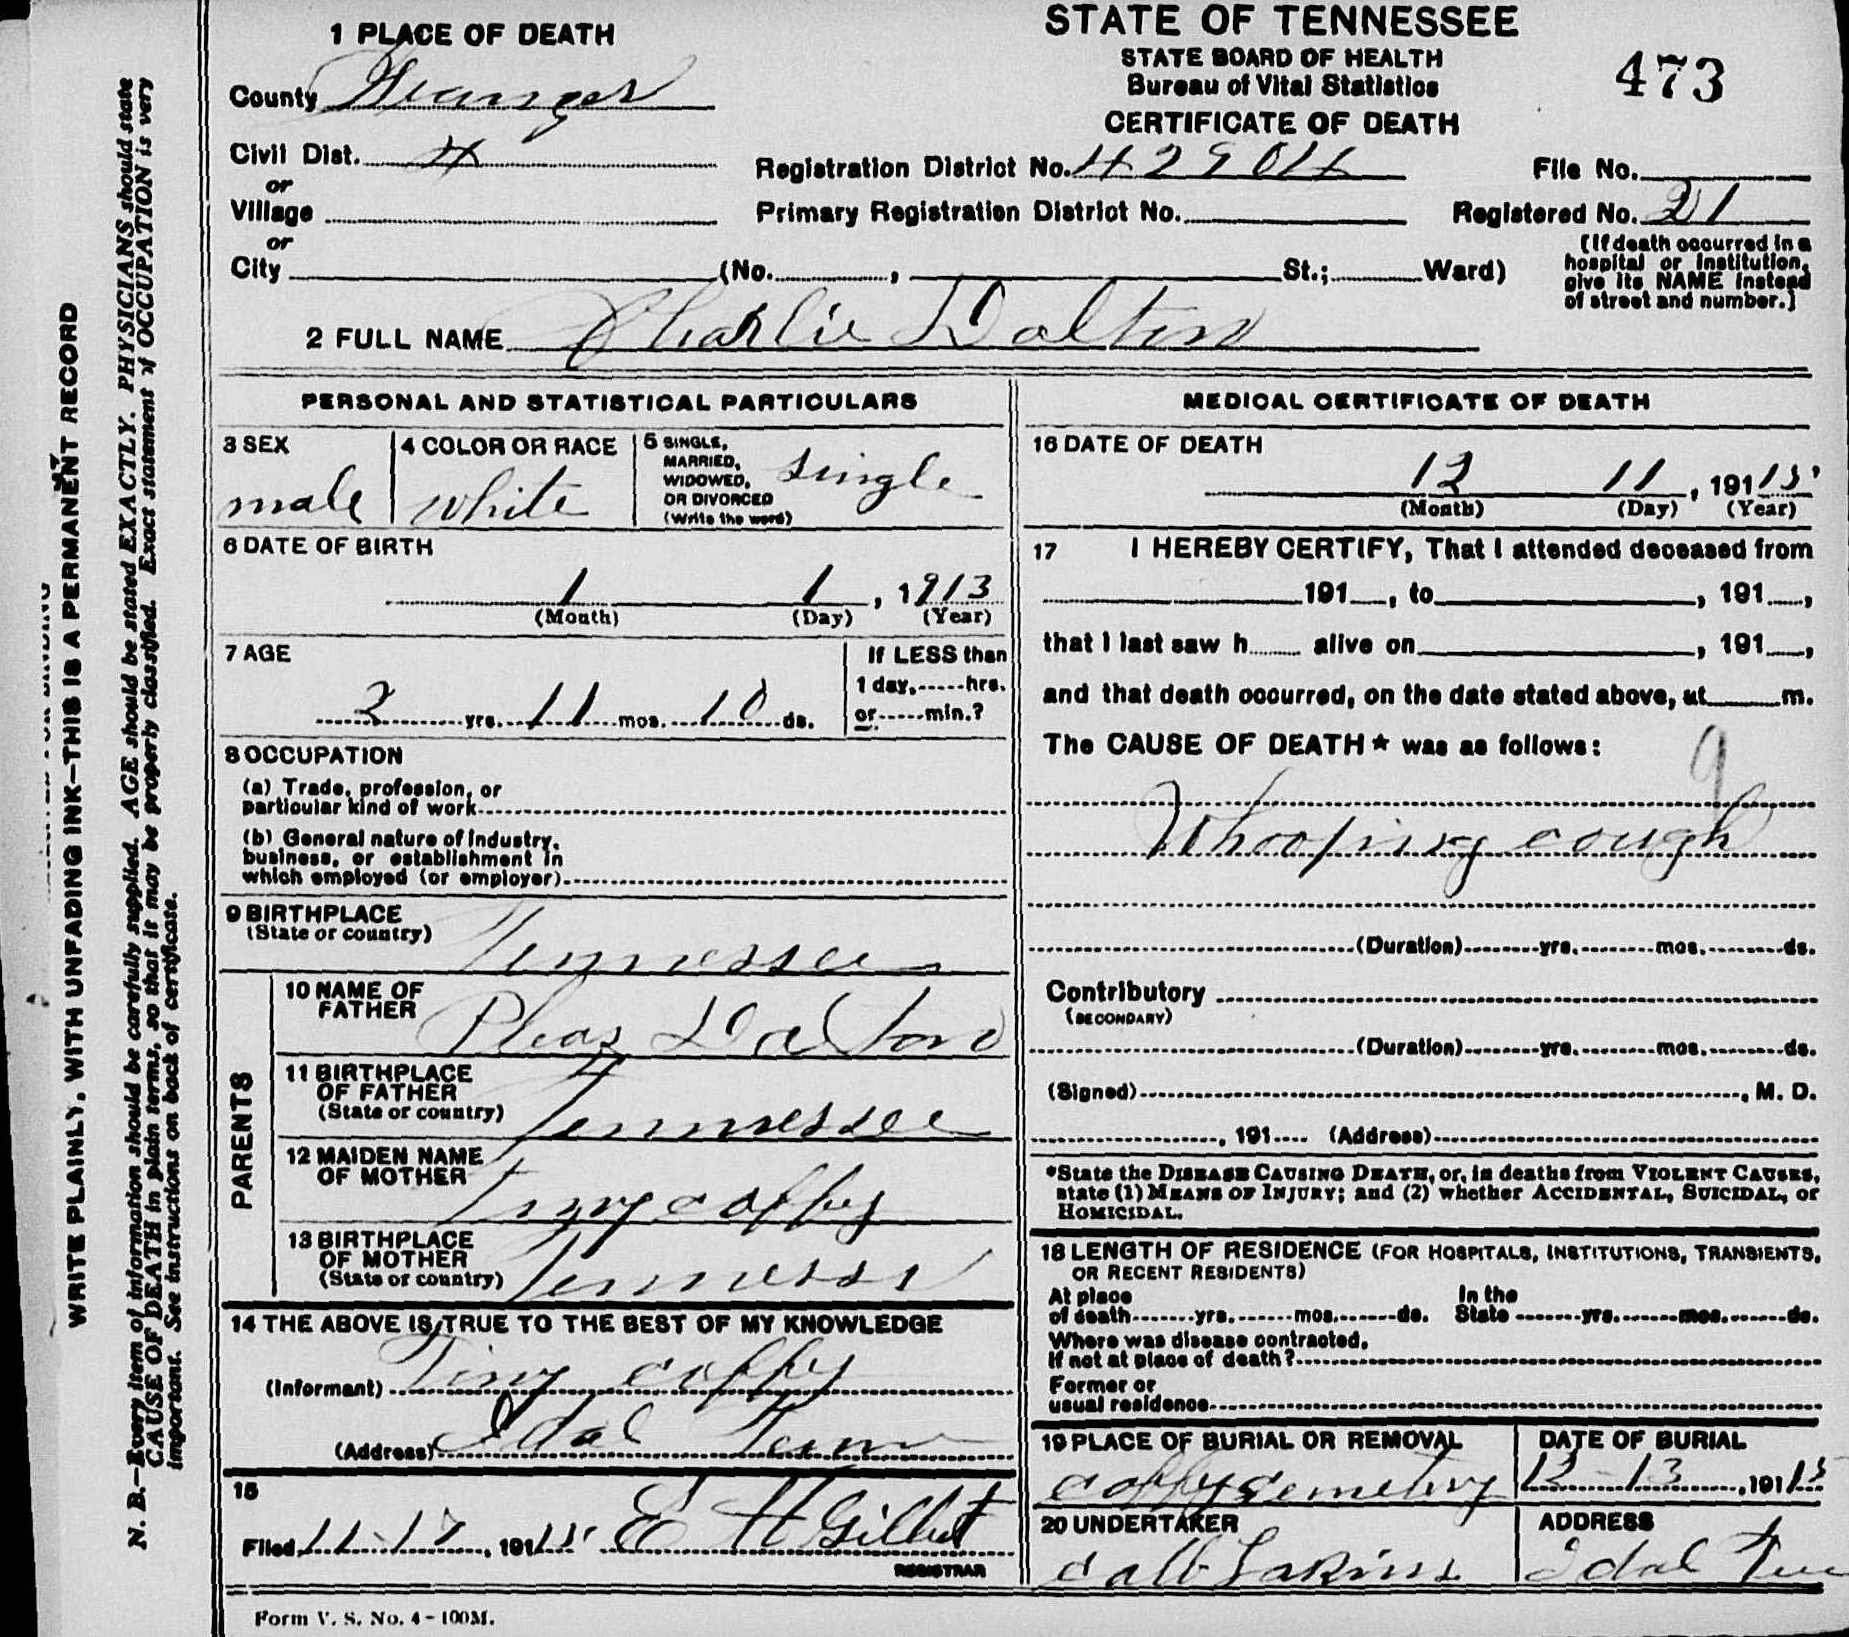 WRITE PLAINLY, WITH UNFADING INK—THIS IS A PERMANENT RECORD
N. B.—Every item of information should be carefully supplied. AGE should be stated EXACTLY. PHYSICIANS should state
CAUSE OF DEATH in plain terms, so that it may be properly classified. Exact statement of OCCUPATION is very
important. See instructions on back of certificate.
1 PLACE OF DEATH
County Grainger
Civil Dist. 4
or
Village
or
City (No. , St.; Ward)
STATE OF TENNESSEE
STATE BOARD OF HEALTH
Bureau of Vital Statistics
CERTIFICATE OF DEATH
473
Registration District No. 42904 File No.
Primary Registration District No. Registered No. 21
(If death occurred in a
hospital or institution,
give its NAME instead
of street and number.)
2 FULL NAME Charlie Dalton
PERSONAL AND STATISTICAL PARTICULARS
3 SEX
male
4 COLOR OR RACE
white
5 SINGLE,
MARRIED,
WIDOWED,
OR DIVORCED
(Write the word)
single
6 DATE OF BIRTH
1 1, 1913
(Month) (Day) (Year)
7 AGE
2 yrs. 11 mos. 10 ds.
If LESS than
1 day, hrs.
or min.?
8 OCCUPATION
(a) Trade, profession, or
particular kind of work
(b) General nature of industry,
business, or establishment in
which employed (or employer)
9 BIRTHPLACE
(State or country)
Tennessee
PARENTS
10 NAME OF
FATHER
Pleas Dalton
11 BIRTHPLACE
OF FATHER
(State or country)
Tennessee
12 MAIDEN NAME
OF MOTHER
Tiny coffey
13 BIRTHPLACE
OF MOTHER
(State or country)
14 THE ABOVE IS TRUE TO THE BEST OF MY KNOWLEDGE
(Informant) Tiny coffey
(Address) Idal Tenn
15
Filed 11-17, 19115 E H Gilbert
REGISTRAR
Form V. S. No. 4-100M.
MEDICAL CERTIFICATE OF DEATH
16 DATE OF DEATH
12 11, 19115
(Month) (Day) (Year)
17 I HEREBY CERTIFY, That I attended deceased from
191 , to , 191 ,
that I last saw h alive on , 191 ,
and that death occurred, on the date stated above, at m.
The CAUSE OF DEATH* was as follows:
9
Whooping cough
(Duration) yrs. mos. ds.
Contributory
(SECONDARY)
(Duration) yrs. mos. ds.
(Signed) , M. D.
, 191 (Address)
*State the DISEASE CAUSING DEATH, or, in deaths from VIOLENT CAUSES,
state (1) MEANS OF INJURY; and (2) whether ACCIDENTAL, SUICIDAL, or
HOMICIDAL.
18 LENGTH OF RESIDENCE (FOR HOSPITALS, INSTITUTIONS, TRANSIENTS,
OR RECENT RESIDENTS)
At place
of death yrs. mos. ds.
In the
State yrs. mos. ds.
Where was disease contracted,
If not at place of death?
Former or
usual residence
19 PLACE OF BURIAL OR REMOVAL
coffey cemetery
DATE OF BURIAL
12-13, 19115
20 UNDERTAKER
Lakins
ADDRESS
Idal